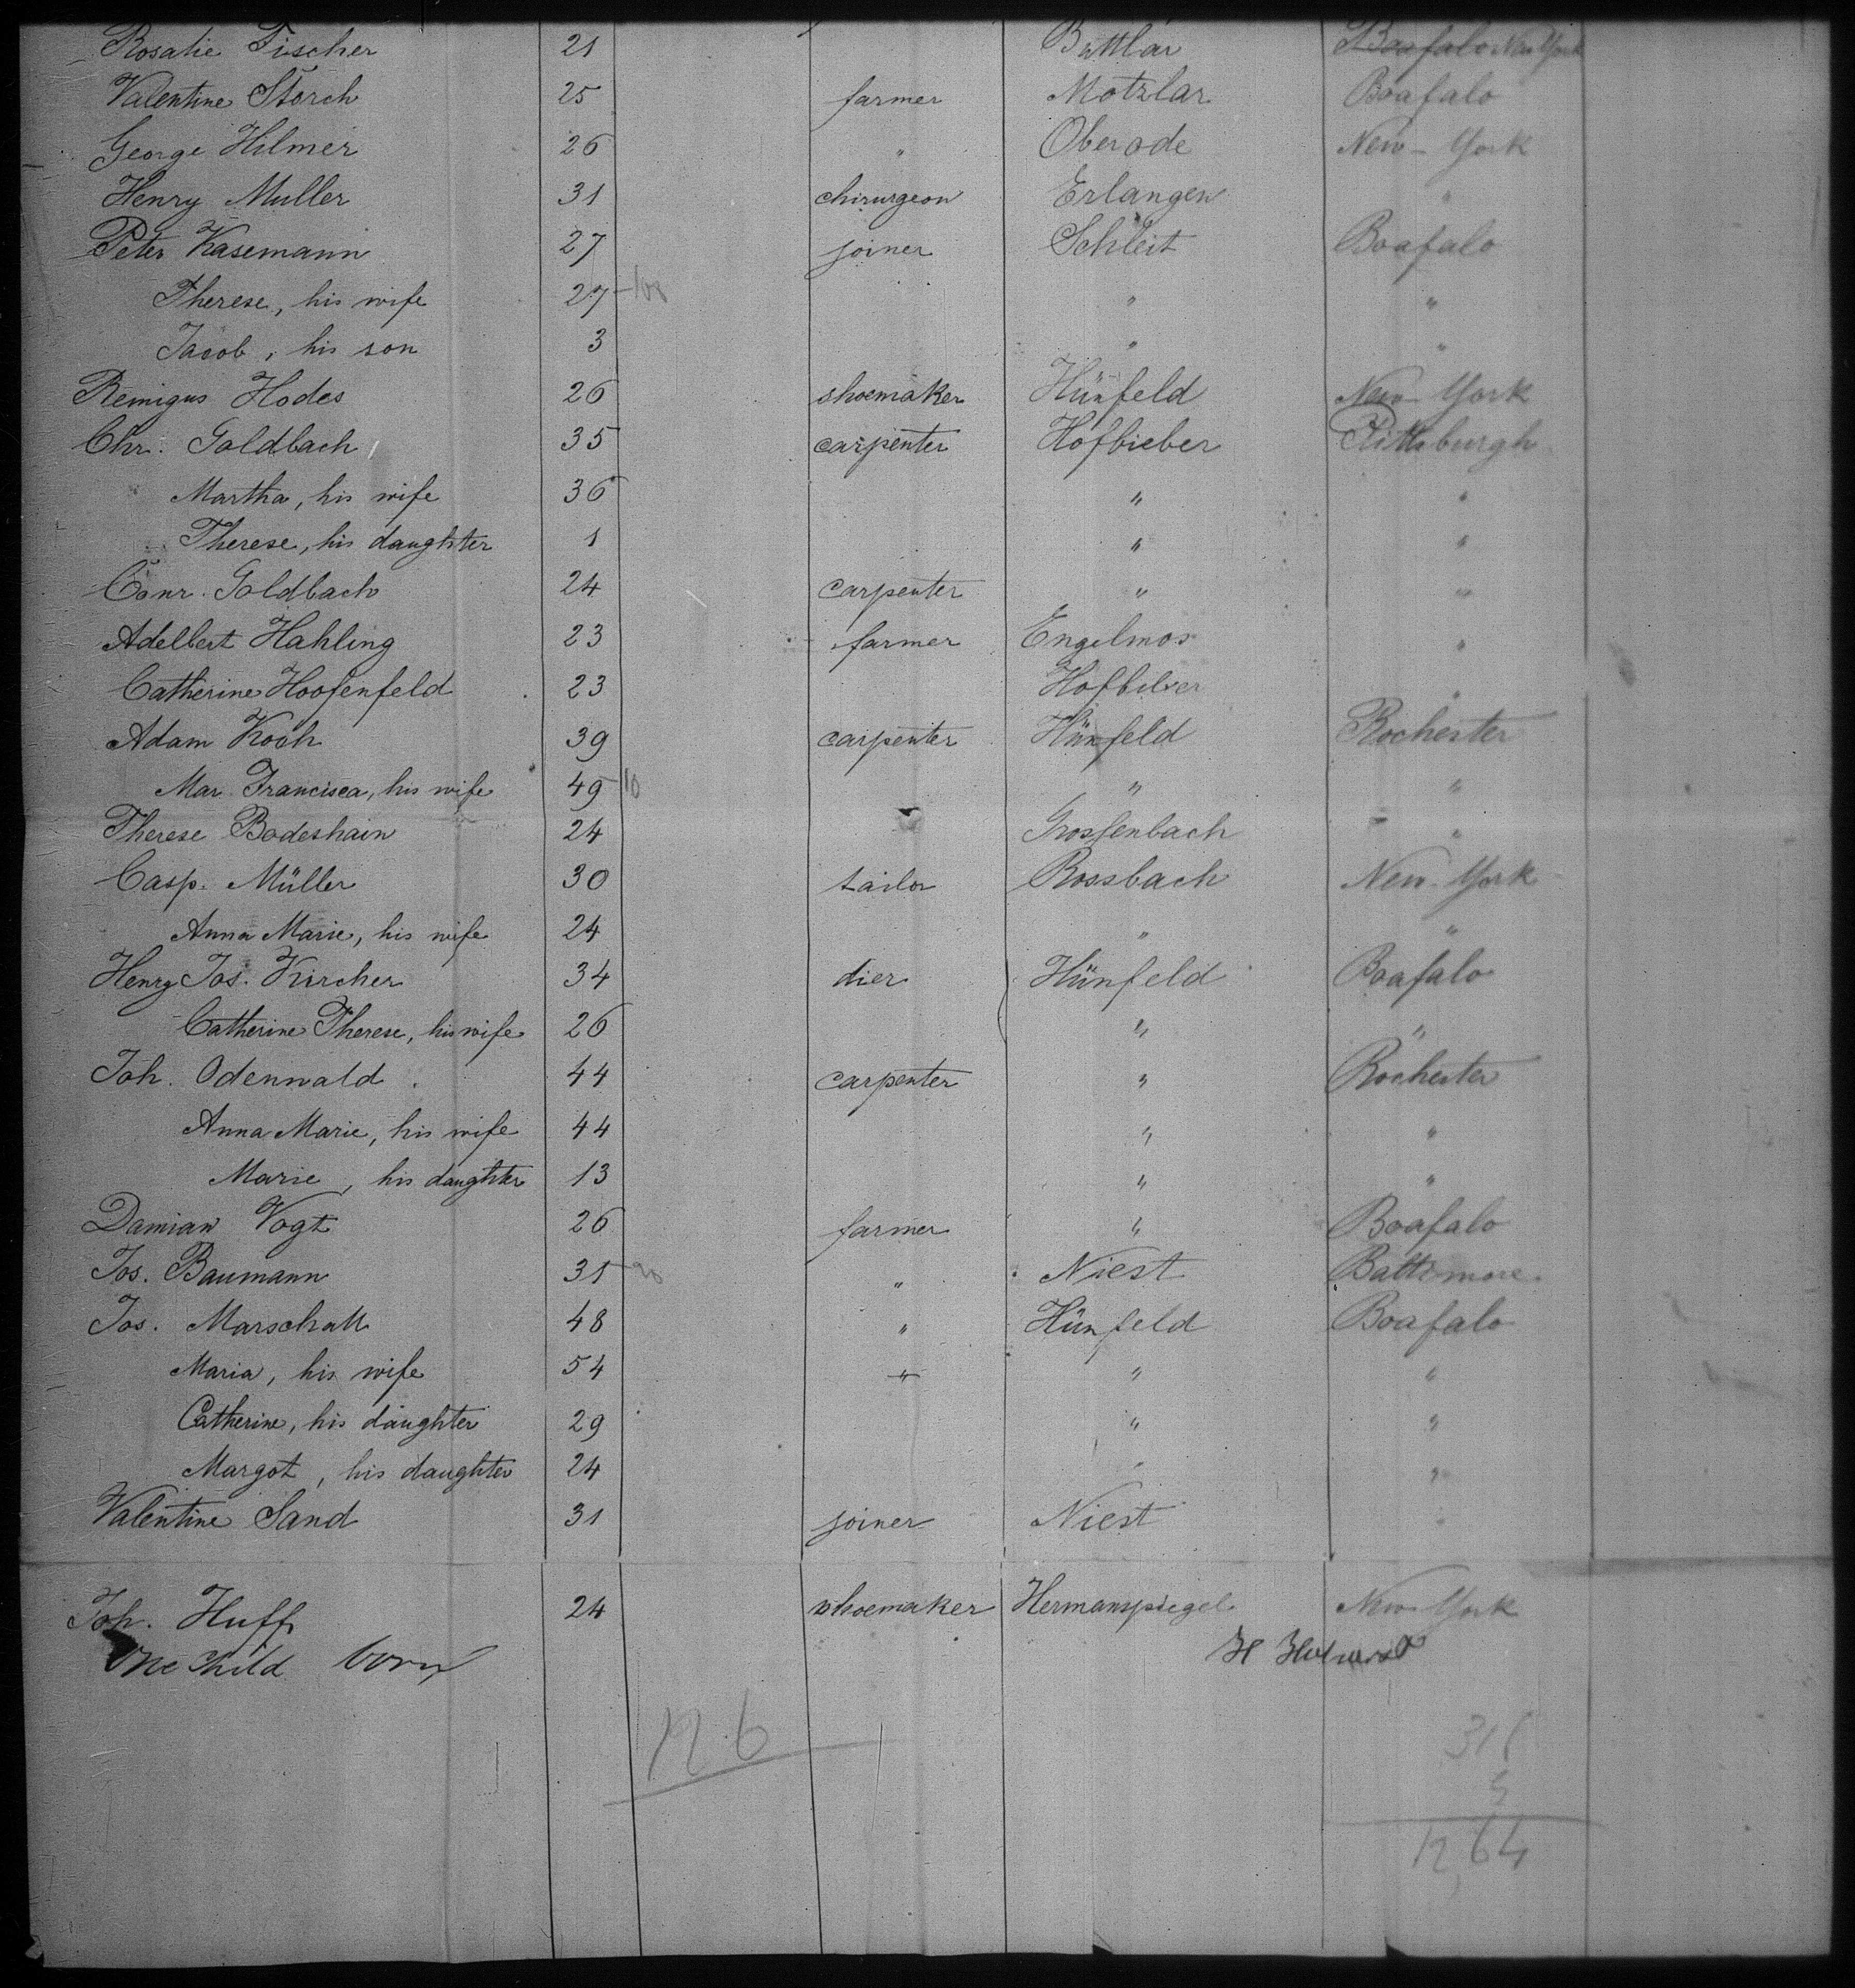 Rosalie Fischer 21 Buttlar Boafalo New York
Valentine Storch 25 farmer Motzlar Boafalo
George Hilmer 26 " Oberode New-York
Henry Muller 31 chirurgeon Erlangen "
Peter Kasemann 27 joiner Schleit Boafalo
Therese, his wife 27 " "
Jacob, his son 3 " "
Remigus Hodes 26 shoemaker Hünfeld New-York
Chr. Goldbach 35 carpenter Hofbieber Pittsburgh
Martha, his wife 36 " "
Therese, his daughter 1 " "
Conr. Goldbach 24 carpenter " "
Adelbert Hahling 23 farmer Engelmos "
Catherine Hoofenfeld 23 "
Adam Koch 39 carpenter Hünfeld Rochester
Mar. Francisca, his wife 49 10 " "
Therese Bodeshain 24 Grossenbach "
Casp. Müller 30 tailor Rossbach New-York
Anna Marie, his wife 24 " "
Henry Jos. Kircher 34 dier Hünfeld Boafalo
Catherine Therese, his wife 26 " "
Joh. Odenwald 44 carpenter " Rochester
Anna Marie, his wife 44 " "
Marie, his daughter 13 " "
Damian Vogt 26 farmer " Boafalo
Jos. Baumann 31 " Niest Baltimore
Jos. Marschall 48 " Hünfeld Boafalo
Maria, his wife 54 " " "
Catherine, his daughter 29 " "
Margot, his daughter 24 " "
Valentine Sand 31 joiner Niest "
Joh. Huff 24 shoemaker Hermanspiegel New-York
One child born H
126
5
1264